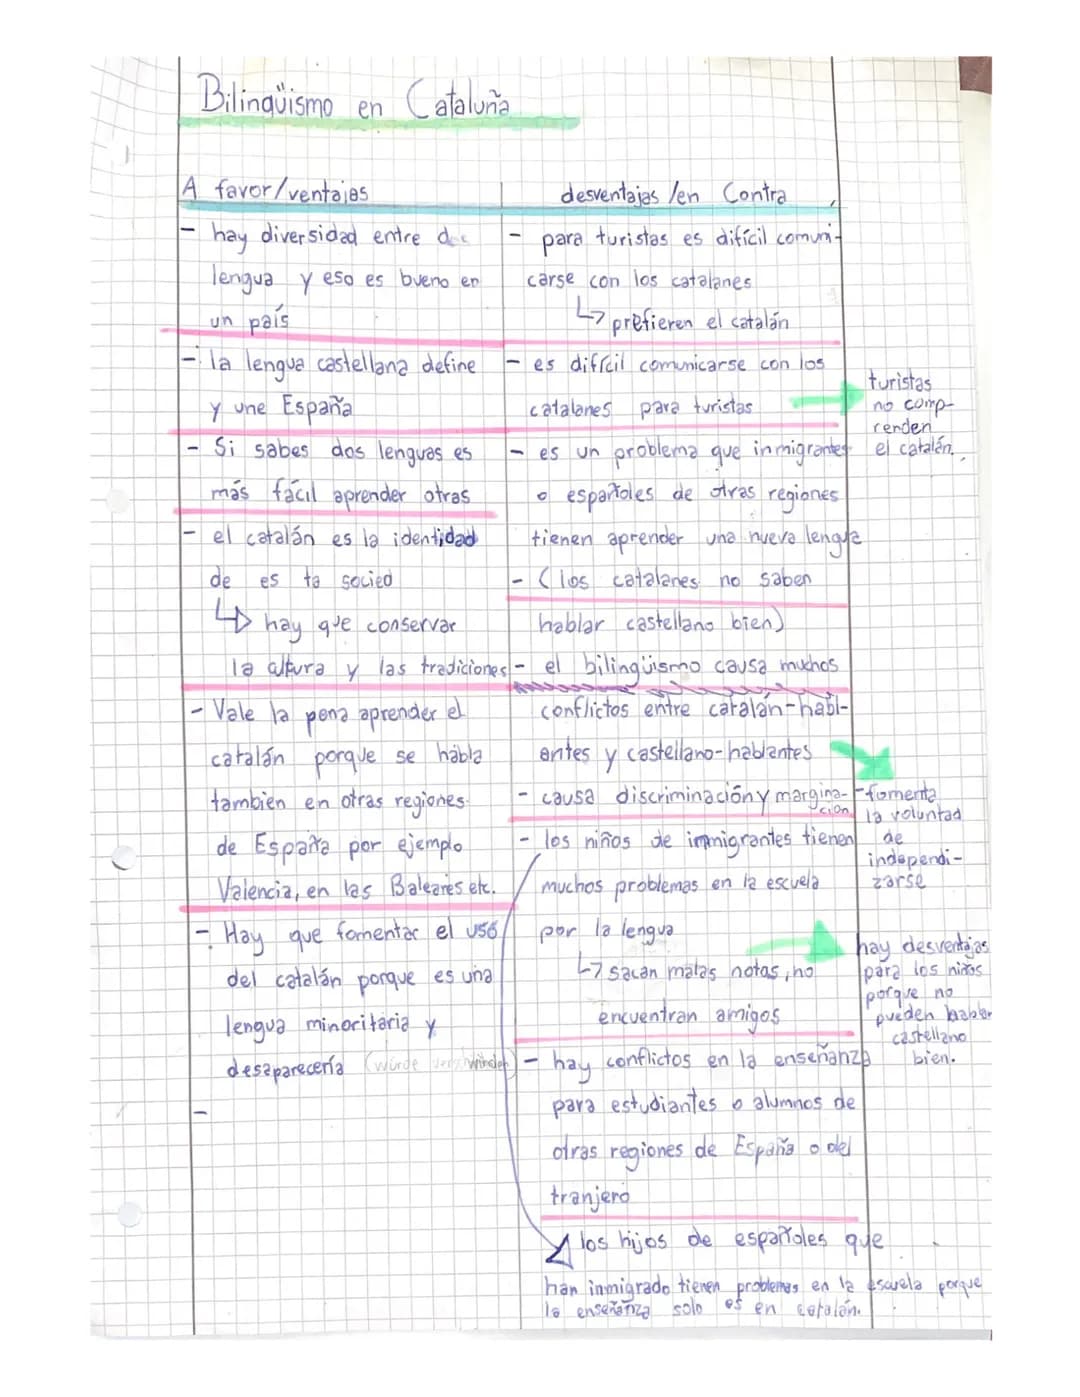 Bilingüismo en Cataluña
A favor/ventajas
- hay diversidad entre dos
lengua y eso es bueno en
un país
- la lengua castellana define
y une España
- Si sabes dos lenguas es
más fácil aprender otras
- el catalán es la identidad
de es ta socied
↳ hay que conservar
la altura y las tradiciones
- Vale la pena aprender el
catalán porque se habla
tambien en otras regiones
de España por ejemplo
Valencia, en las Baleares etc.
- Hay que fomentar el uso
del catalán porque es una
lengua minoritaria y
desaparecería (würde verschwinden)
-
desventajas/en Contra
- para turistas es difícil comuni-
carse con los catalanes
↳ prefieren el catalán
- es difícil comunicarse con los
catalanes para turistas
turistas
no comp-
renden
el catalán.
- es un problema que inmigrantes
o españoles de otras regiones
tienen aprender una nueva lengua
- (los catalanes no saben
hablar castellano bien)
- el bilingüismo causa muchos
conflictos entre catalán-habl-
antes y castellano-hablantes
- causa discriminación y margina-
ción
- fomenta
la voluntad
de
independi-
zarse
- los niños de inmigrantes tienen
muchos problemas en la escuela
por la lengua
↳ sacan malas notas, no
encuentran amigos
hay desventajas
para los niños
porque no
pueden hablar
castellano
bien.
- hay conflictos en la enseñanza
para estudiantes o alumnos de
otras regiones de España o del
tranjero
los hijos de españoles que
han inmigrado tienen problemas en la escuela porque
la enseñanza solo es en catalán.